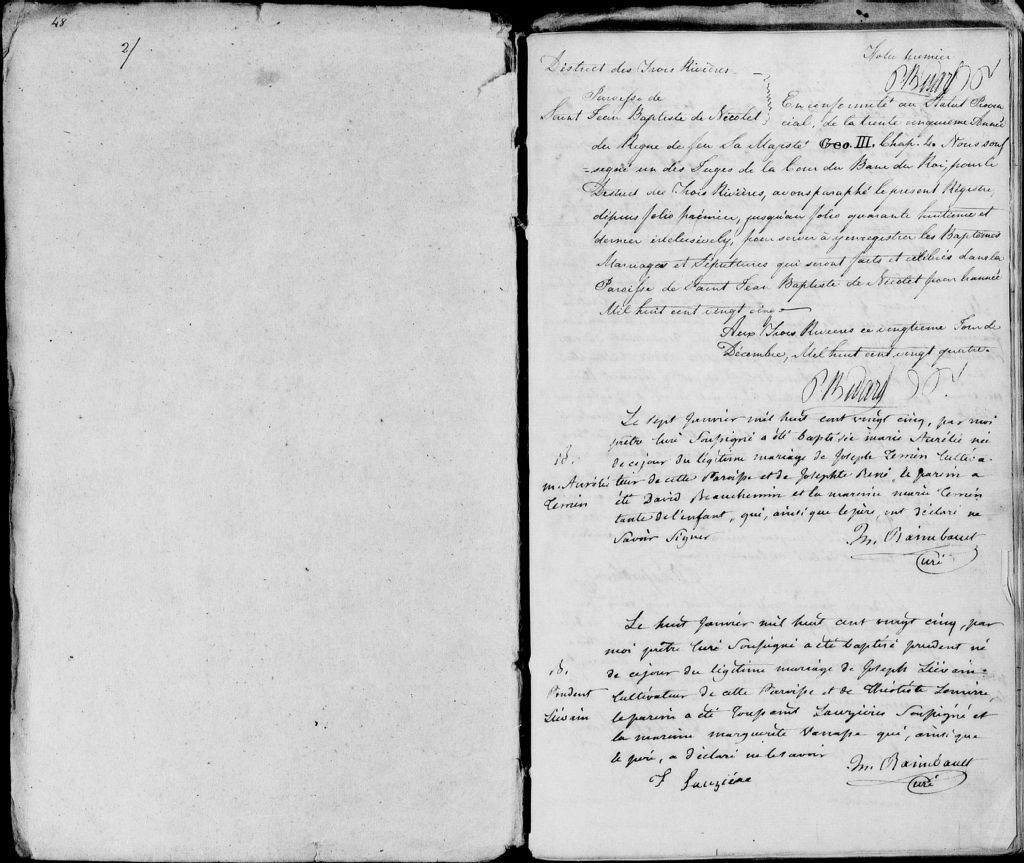 48
2/
Folio premier
P. Bedard
District des Trois Rivières
Paroisse de
Saint Jean Baptiste de Nicolet
En conformité au Statut Provin
cial, de la trente cinquième Année
du Règne de feu Sa Majesté Geo. III. Chap. 4. Nous sous
=signé un des Juges de la Cour du Banc du Roi, pour le
District des Trois Rivières, avons paraphé le présent Régistre
dépuis folio prémier, jusqu'au folio quarante huitieme et
dernier inclusively, pour servir à y enregistrer les Baptemes
Mariages et Sépultures qui seront faits et célébrés dans la
Paroisse de Saint Jean Baptiste de Nicolet pour l'année
Mil huit cent vingt cinq
Aux Trois Rivieres ce vingtieme Jour de
Décembre, Mil huit cent vingt quatre.
P. Bedard
Le sept Janvier mil huit cent vingt cinq, par moi
prêtre Curé Soussigné a été baptisée marie Aurélie née
de ce jour du légitime mariage de Joseph Lemin Cultiva
B.
m. Aurélie
Lemin
teur de cette Paroisse et de Josephte René, le parein a
été David Beauchemin et la mareine marie Lemin
tante de l'enfant, qui, ainsi que le père, ont déclaré ne
Savoir Signer
Rambault
Curé
Le huit Janvier mil huit cent vingt cinq, par
moi prêtre Curé Soussigné a été baptisé prudent né
de ce jour du légitime mariage de Joseph Liévain
B.
Prudent
Liévain
Cultivateur de cette Paroisse et de Théotiste Lemire,
le parein a été Toussaint Lauzière Soussigné et
la mareine marguerite Vanasse qui, ainsi que
le père, a déclaré ne le savoir
T Lauzière
Raimbault
Curé